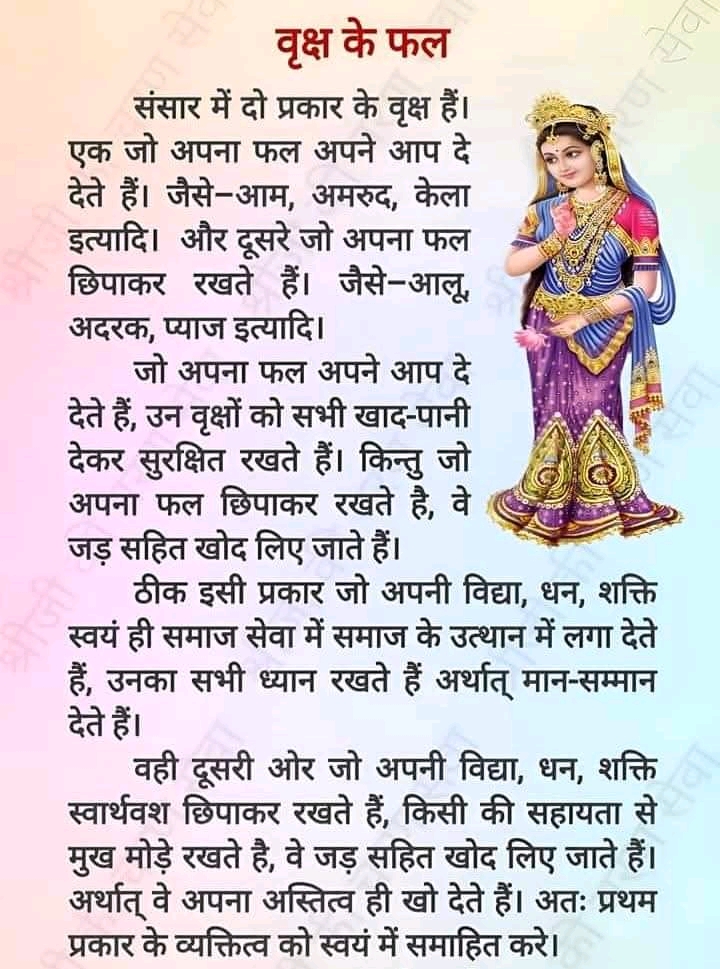 वृक्ष के फल
संसार में दो प्रकार के वृक्ष हैं।
एक जो अपना फल अपने आप दे
देते हैं। जैसे–आम, अमरुद, केला
इत्यादि। और दूसरे जो अपना फल
छिपाकर रखते हैं। जैसे–आलू,
अदरक, प्याज इत्यादि।
जो अपना फल अपने आप दे
देते हैं, उन वृक्षों को सभी खाद-पानी
देकर सुरक्षित रखते हैं। किन्तु जो
अपना फल छिपाकर रखते है, वे
जड़ सहित खोद लिए जाते हैं।
ठीक इसी प्रकार जो अपनी विद्या, धन, शक्ति
स्वयं ही समाज सेवा में समाज के उत्थान में लगा देते
हैं, उनका सभी ध्यान रखते हैं अर्थात् मान-सम्मान
देते हैं।
वही दूसरी ओर जो अपनी विद्या, धन, शक्ति
स्वार्थवश छिपाकर रखते हैं, किसी की सहायता से
मुख मोड़े रखते है, वे जड़ सहित खोद लिए जाते हैं।
अर्थात् वे अपना अस्तित्व ही खो देते हैं। अतः प्रथम
प्रकार के व्यक्तित्व को स्वयं में समाहित करे।